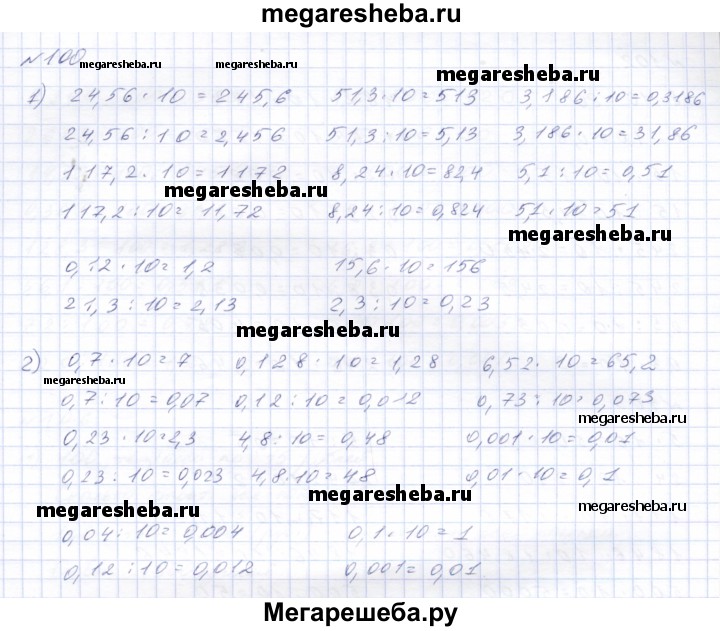 megaresheba.ru
№100
megaresheba.ru
megaresheba.ru
1) 24,56 · 10 = 245,6 51,3 · 10 = 513 3,186 : 10 = 0,3186
24,56 : 10 = 2,456 51,3 : 10 = 5,13 3,186 · 10 = 31,86
117,2 · 10 = 1172 8,24 · 10 = 82,4 5,1 : 10 = 0,51
megaresheba.ru
117,2 : 10 = 11,72 8,24 : 10 = 0,824 5,1 · 10 = 51
megaresheba.ru
0,12 · 10 = 1,2 15,6 · 10 = 156
21,3 : 10 = 2,13 2,3 : 10 = 0,23
megaresheba.ru
2) 0,7 · 10 = 7 0,128 · 10 = 1,28 6,52 · 10 = 65,2
megaresheba.ru
0,7 : 10 = 0,07 0,12 : 10 = 0,012 0,73 : 10 = 0,073
megaresheba.ru
0,23 · 10 = 2,3 4,8 : 10 = 0,48 0,001 · 10 = 0,01
0,23 : 10 = 0,023 4,8 · 10 = 48 0,01 · 10 = 0,1
megaresheba.ru
megaresheba.ru
megaresheba.ru
0,04 : 10 = 0,004 0,1 · 10 = 1
0,12 : 10 = 0,012 0,001 = 0,01
Мегарешеба.ру